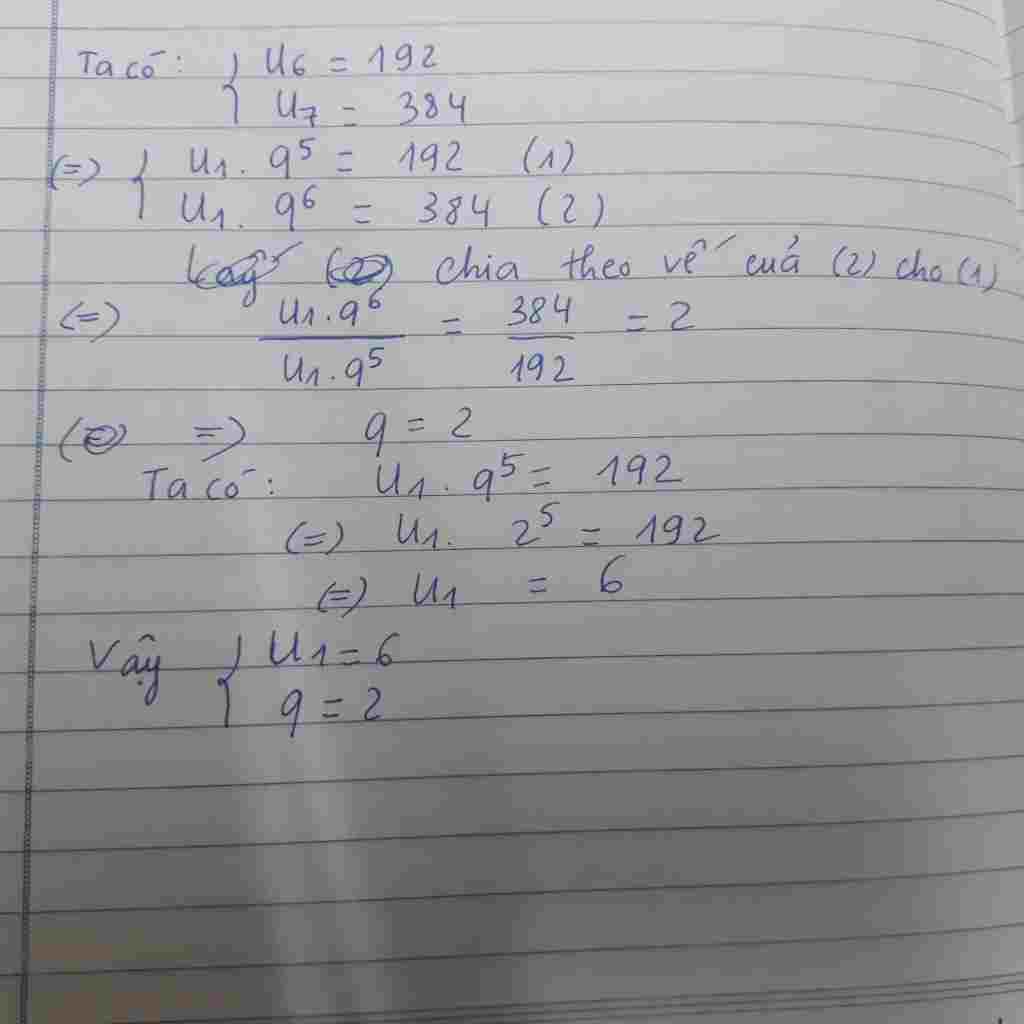 Ta có: { U6 = 192
U7 = 384
(=) { U1. q^5 = 192 (1)
U1. q^6 = 384 (2)
chia theo vế cuả (2) cho (1)
(=) U1.q^6 / U1.q^5 = 384 / 192 = 2
=) q = 2
Ta có: U1. q^5 = 192
(=) U1. 2^5 = 192
(=) U1 = 6
Vậy { U1 = 6
q = 2